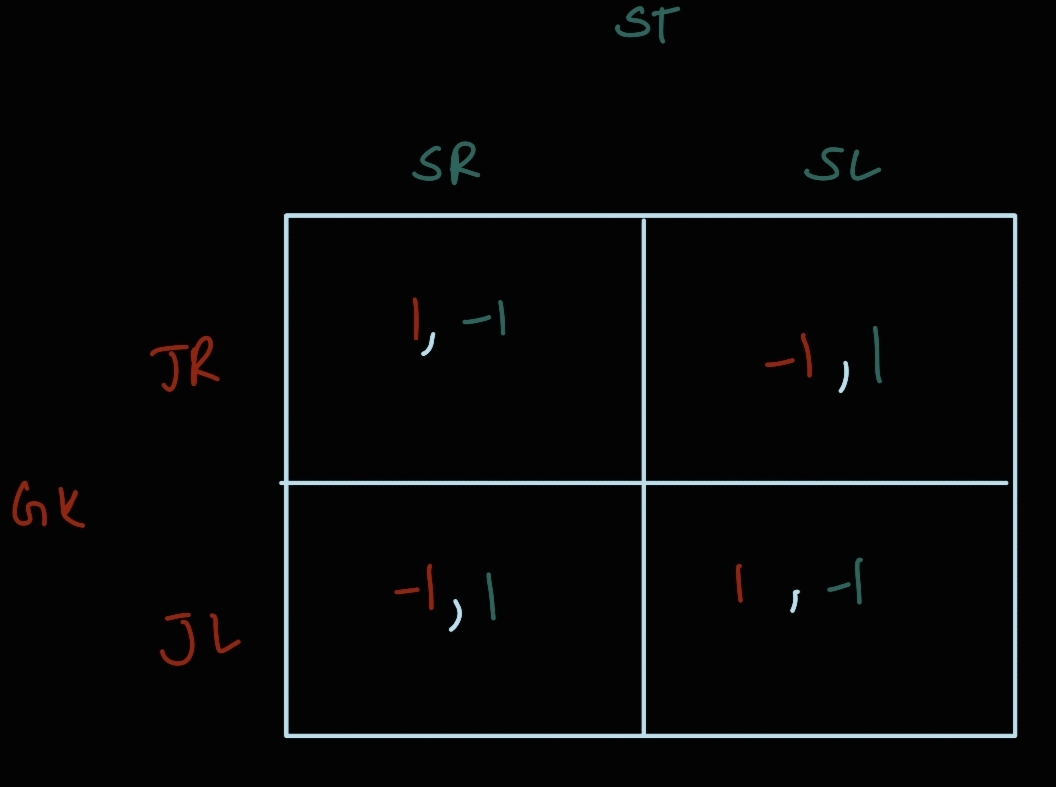 ST
SR SL
JR 1, -1 -1, 1
GK
JL -1, 1 1, -1